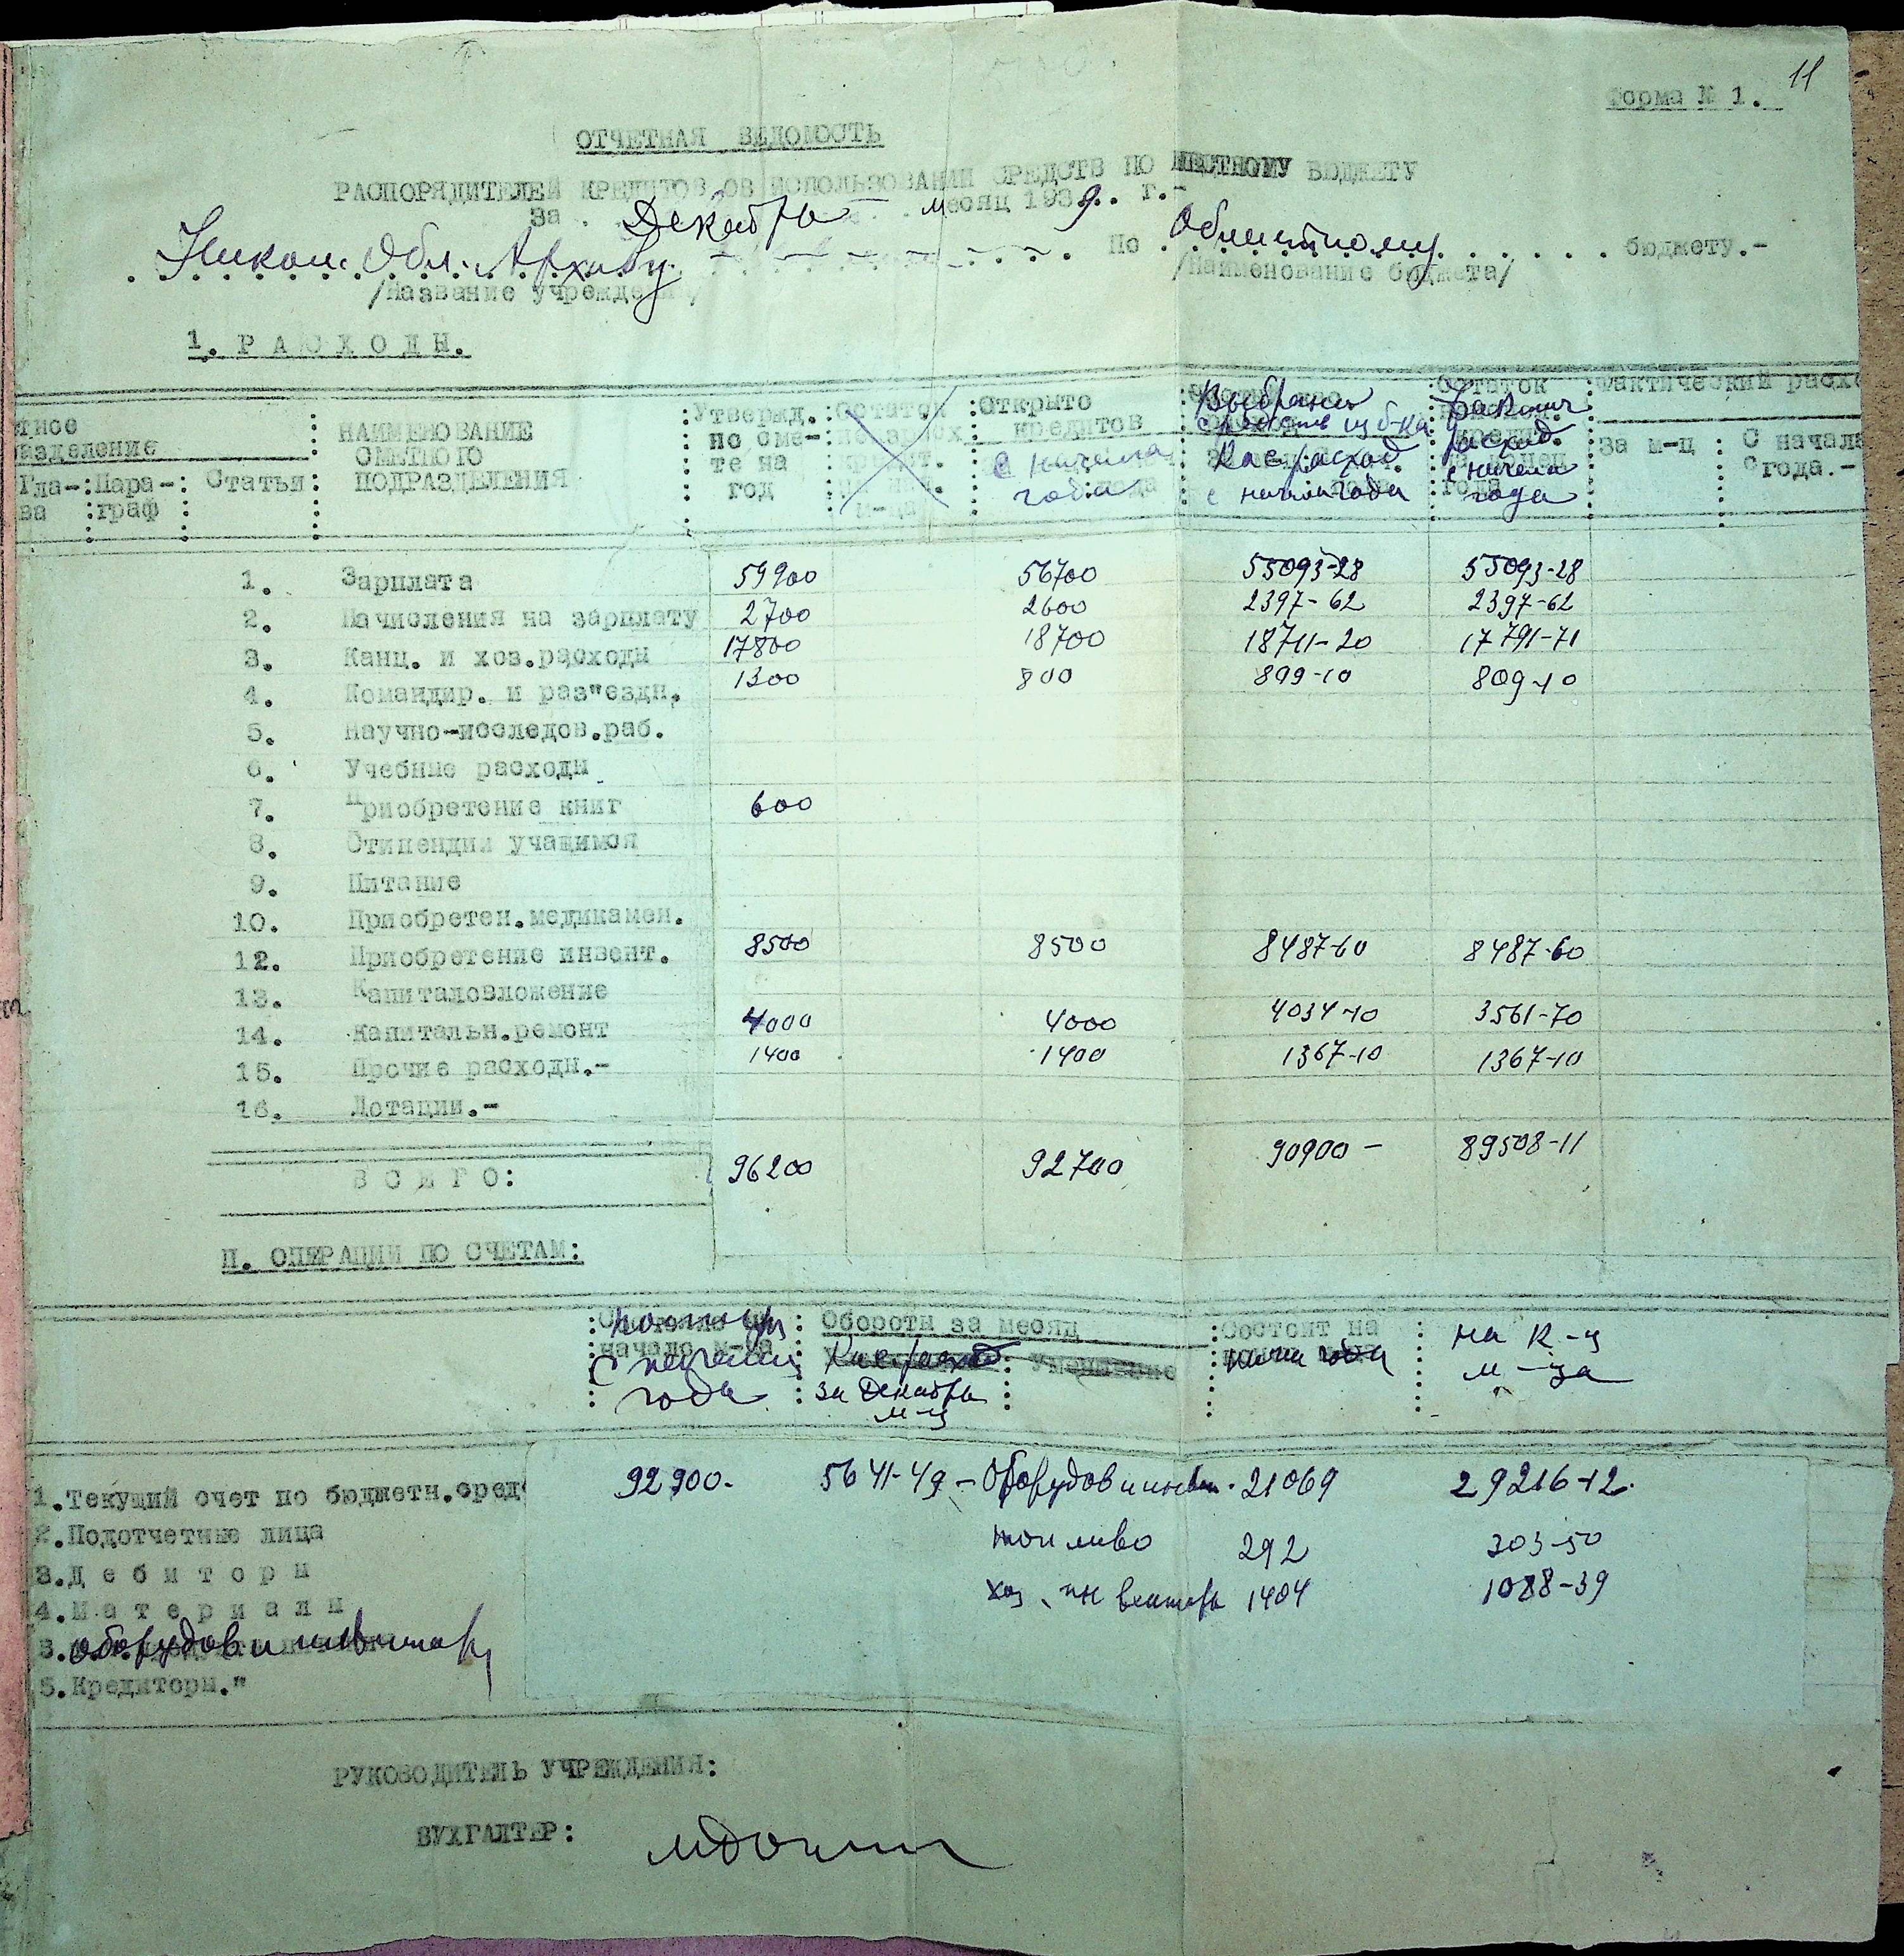 11
Форма № 1.
ОТЧЕТНАЯ ВЕДОМОСТЬ
РАСПОРЯДИТЕЛЕЙ КРЕДИТОВ ОБ ИСПОЛЬЗОВАНИИ СРЕДСТВ ПО МЕСТНОМУ БЮДЖЕТУ
За Декабрь месяц 1939 г.-
Обл. Архиву По Областному бюджету.-
/Название учреждения/ /Наименование бюджета/
1. РАСХОДЫ.
тное азделение Гла-ва Пара-граф Статьи НАИМЕНОВАНИЕ СМЕТНОГО ПОДРАЗДЕЛЕНИЯ Утвержд. по сме-те на год Остаток Открыто кредитов с начала года Выбрано средств из б-ка Кас расход с начала года Фактич расход с начала года Фактический расхо За м-ц С начала года.-
1. Зарплата 59900 56700 55093-28 55093-28
2. Начисления на зарплату 2700 2600 2397-62 2397-62
3. Канц. и хоз.расходы 17800 18700 18711-20 17791-71
4. Командир. и раз"ездн. 1300 800 899-10 809-10
5. Научно-исследов.раб.
6. Учебные расходы
7. Приобретение книг 600
8. Стипендии учащимся
9. Питание
10. Приобретен.медикамен.
12. Приобретение инвент. 8500 8500 8487-60 8487-60
13. Капиталовложение
14. Капитальн.ремонт 4000 4000 4034-10 3561-70
15. Прочие расходы.- 1400 1400 1367-10 1367-10
16. Дотации.-
ВСЕГО: 96200 92700 90900 - 89508-11
П. ОПЕРАЦИИ ПО СЧЕТАМ:
с начала года Обороты за месяц Кас расход за Декабрь м-ц Уменьшение Состоит на начи года на к-ц м-ца
1.Текущий счет по бюджетн.сред 92900. 5641-49 - Оборудов и инвен. 21069 29216-12.
2.Подотчетные лица топливо 292 303-50
3.Дебиторы хоз. инвентарь 1404 1088-39
4.Материалы
оборудов и инвентарь
5.Кредиторы."
РУКОВОДИТЕЛЬ УЧРЕЖДЕНИЯ:
БУХГАЛТЕР: